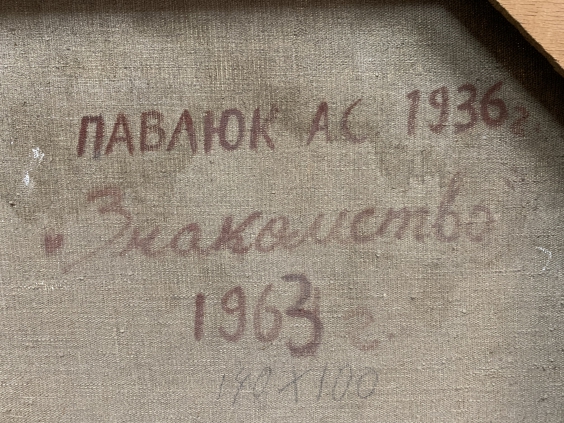 ПАВЛЮК А.С. 1936г
"Знакомство"
1963 г.
140X100